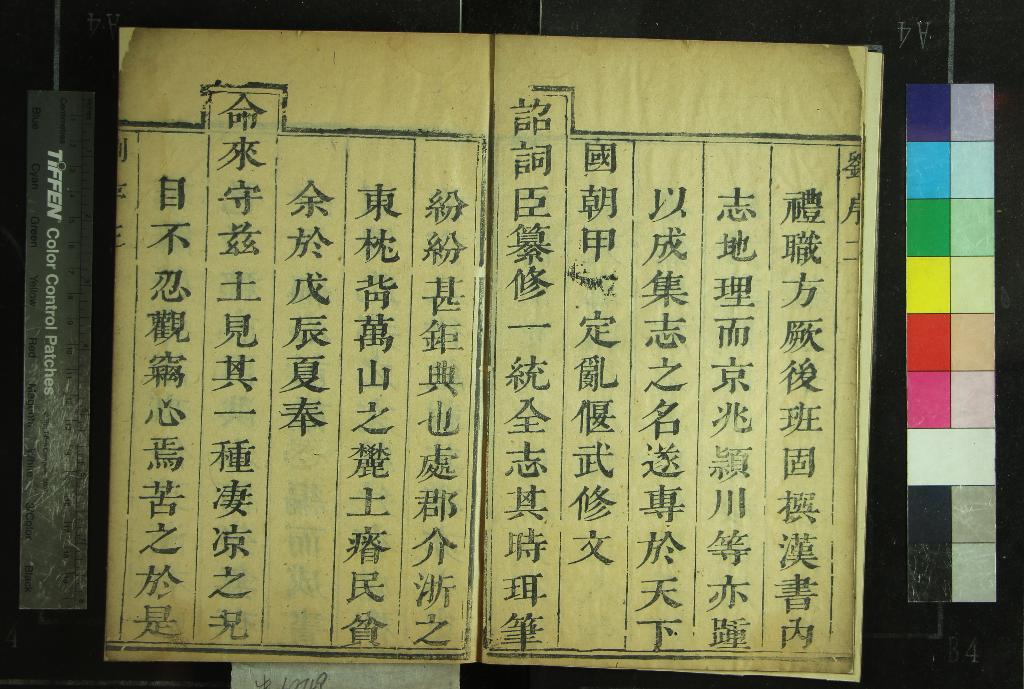 劉序二
禮職方厥後班固撰漢書內
志地理而京兆潁川等亦踵
以成集志之名遂專於天下
國朝甲一定亂偃武修文
詔詞臣纂修一統全志其時珥筆
紛紛甚鉅典也處郡介浙之
東枕背萬山之麓土瘠民貧
余於戊辰夏奉
命來守茲土見其一種凄凉之況
目不忍觀竊心焉苦之於是
TIFFEN Color Control Patches
Centimetres
Blue
Cyan
Green
Yellow
Red
Magenta
White
3/Color
Black
A4
A4
B4